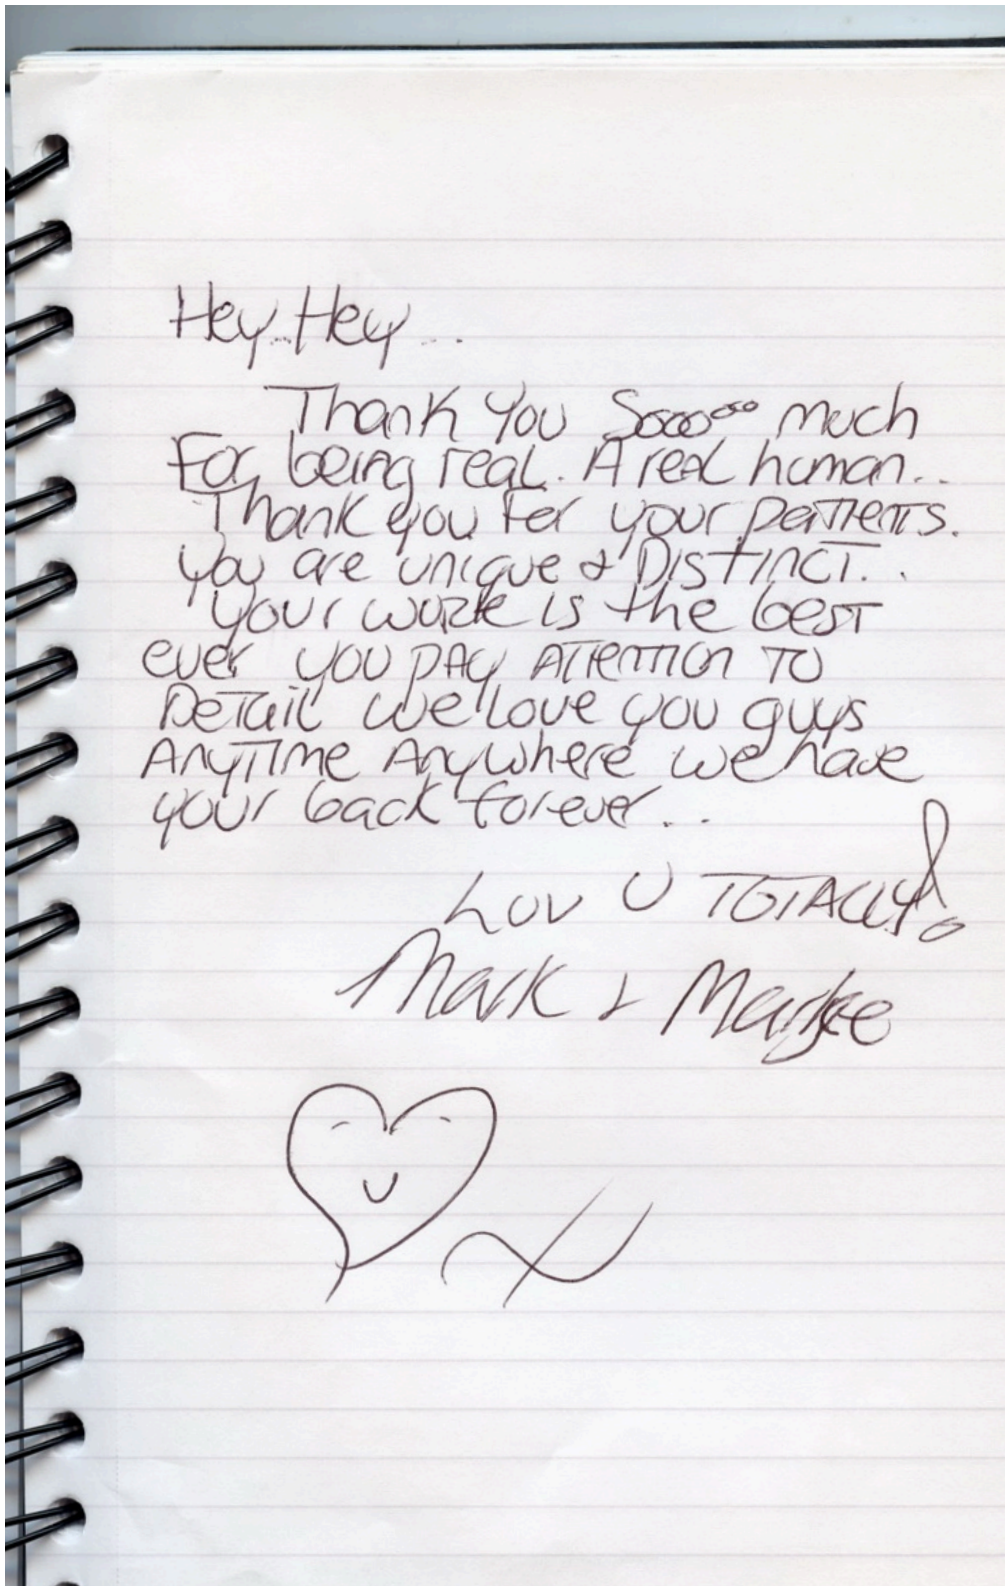 Hey.. Hey...
Thank You Sooooooo much
For being real. A real human..
Thank you for your patients.
you are unique & DISTINCT..
your work is the best
ever you pay ATTENTION TO
DETAIL we love you guys
ANYTIME Anywhere we have
your back forever...
Luv U TOTALLY!
Mark & Marjke
X